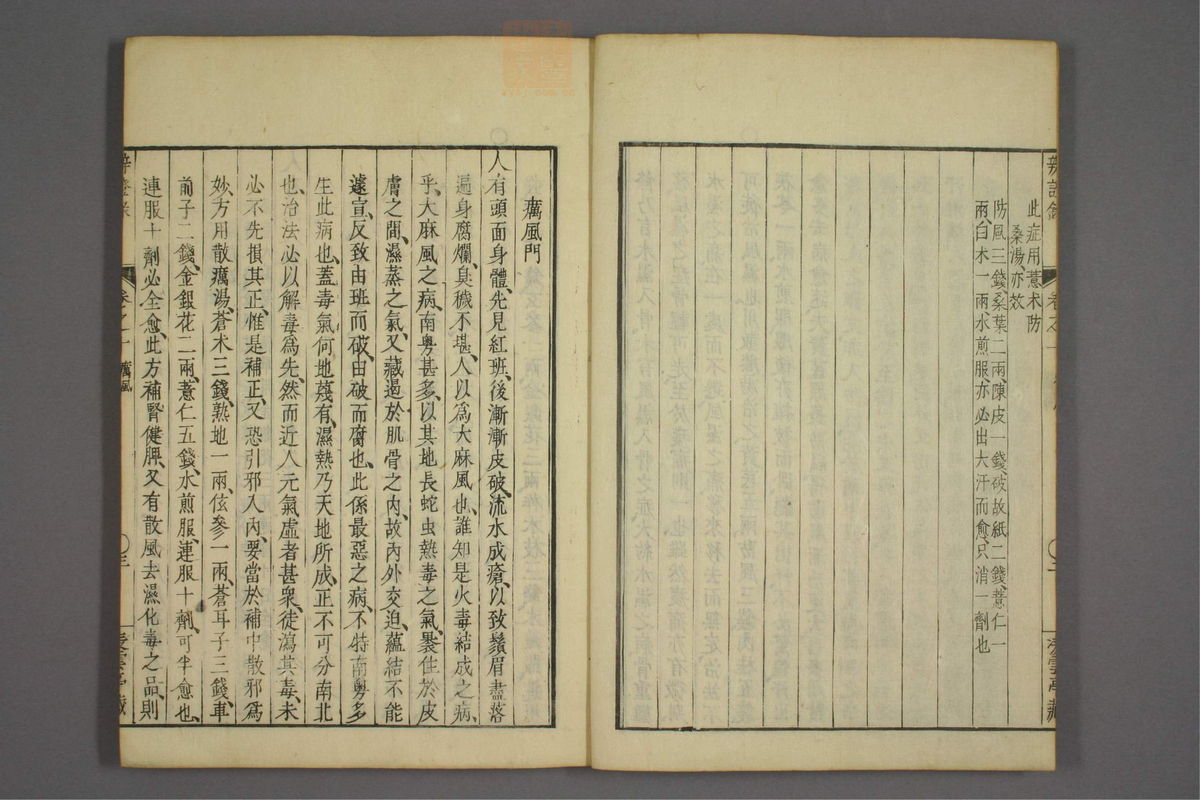 此症用薏朮防
桑湯亦效
防風三錢、桑葉二兩、陳皮一錢、破故紙二錢、薏仁一
兩、白朮一兩、水煎服、亦必出大汗而愈、只消一劑也
癘風門
○人有頭面身體、先見紅班、後漸漸皮破、流水成瘡、以致鬚眉盡落
遍身腐爛、臭穢不堪、人以爲大麻風也、誰知是火毒結成之病、
乎、大麻風之病、南粵甚多、以其地長蛇虫熱毒之氣、裊住於皮
膚之間、濕蒸之氣、又藏遏於肌骨之內、故內外交迫、蘊結不能
遽宣、反致由班而破、由破而腐也、此係最惡之病、不特南粵多
生此病也、蓋毒氣何地蔑有、濕熱乃天地所成、正不可分南北
也、治法必以解毒爲先、然而近人元氣虛者甚衆、徒瀉其毒、未
必不先損其正、惟是補正、又恐引邪入內、要當於補中散邪爲
妙、方用散癘湯、蒼朮三錢、熟地一兩、伭參一兩、蒼耳子三錢、車
前子二錢、金銀花二兩、薏仁五錢、水煎服、連服十劑、可半愈也、
連服十劑必全愈、此方補腎健脾、又有散風去濕化毒之品、則
卷之十 癘風